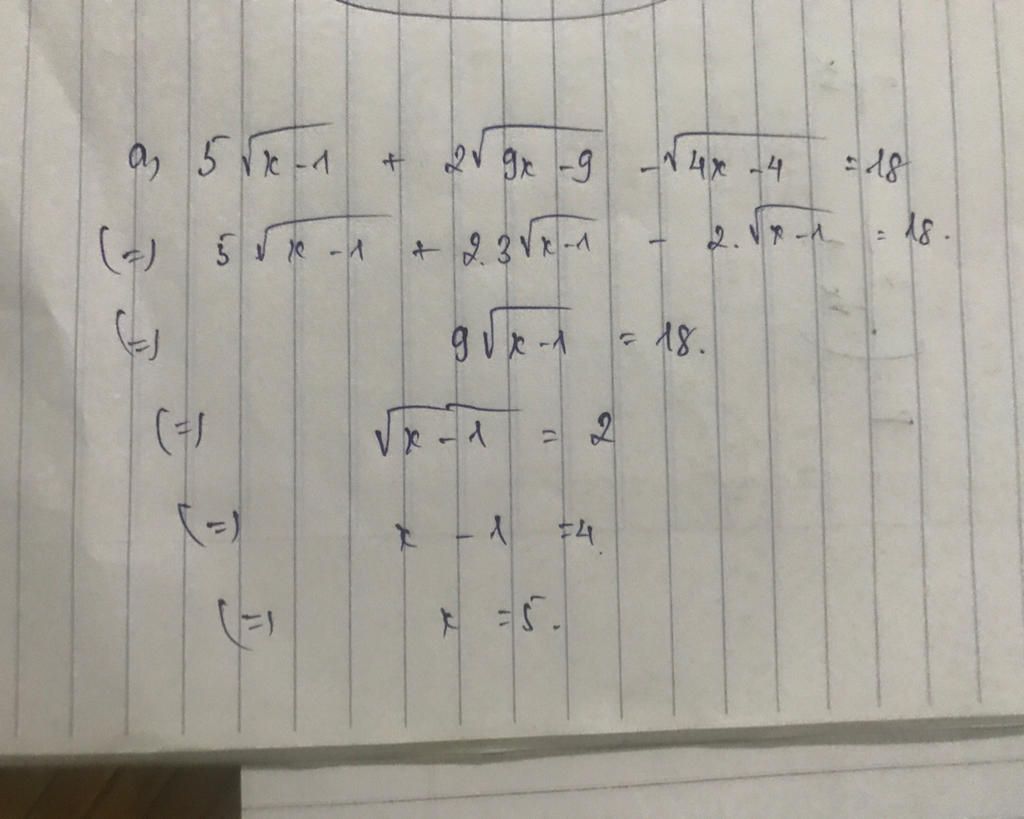 a, 5√(x-1) + 2√(9x-9) -√(4x-4) =18
(=) 5√(x-1) + 2.3√(x-1) - 2.√(x-1) = 18.
(=) 9√(x-1) = 18.
(=) √(x-1) = 2
(=) x - 1 =4.
(=) x =5.